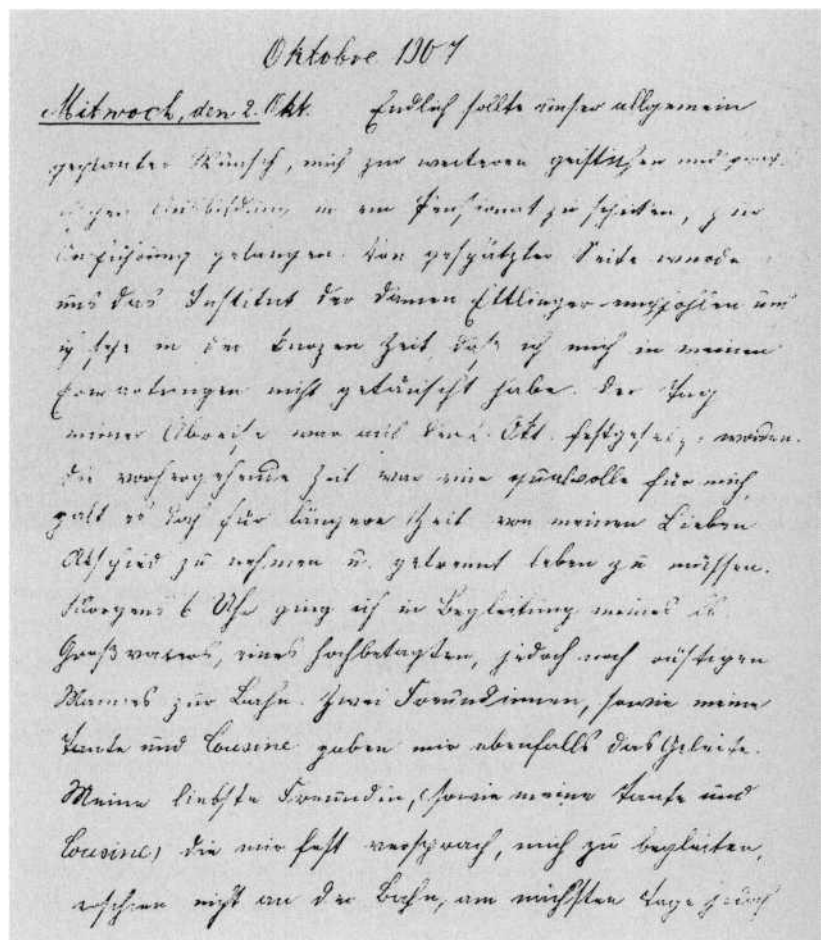 Oktobre 1907
Mitwoch, den 2. Okt. Endlich sollte unser allgemein
geplanter Wunsch, mich zur weiteren geistischen und
Ausbildung in ein Pensionat zu schicken, zur
Ausführung gelangen. Von geschätzter Seite wurde
uns das Institut der Damen Ettlinger empfohlen und
ich sehe in der kurzen Zeit, daß ich mich in meinen
Erwartungen nicht getäuscht habe. Der Tag
meiner Abreise war auf den 2. Okt. festgesetzt worden.
Die vorhergehende Zeit war eine qualvolle für mich,
galt es doch für längere Zeit von meinen Lieben
Abschied zu nehmen u. getrennt leben zu müssen.
Morgens 6 Uhr ging ich in Begleitung meines lb.
Großvaters, eines hochbetagten, jedoch noch rüstigen
Mannes zur Bahn. Zwei Freundinnen, sowie meine
Tante und Cousine gaben mir ebenfalls das Geleite.
Meine liebste Freundin, (sowie meine Tante und
Cousine) die mir fest versprach, mich zu begleiten,
erschien nicht an der Bahn, am nächsten Tage jedoch